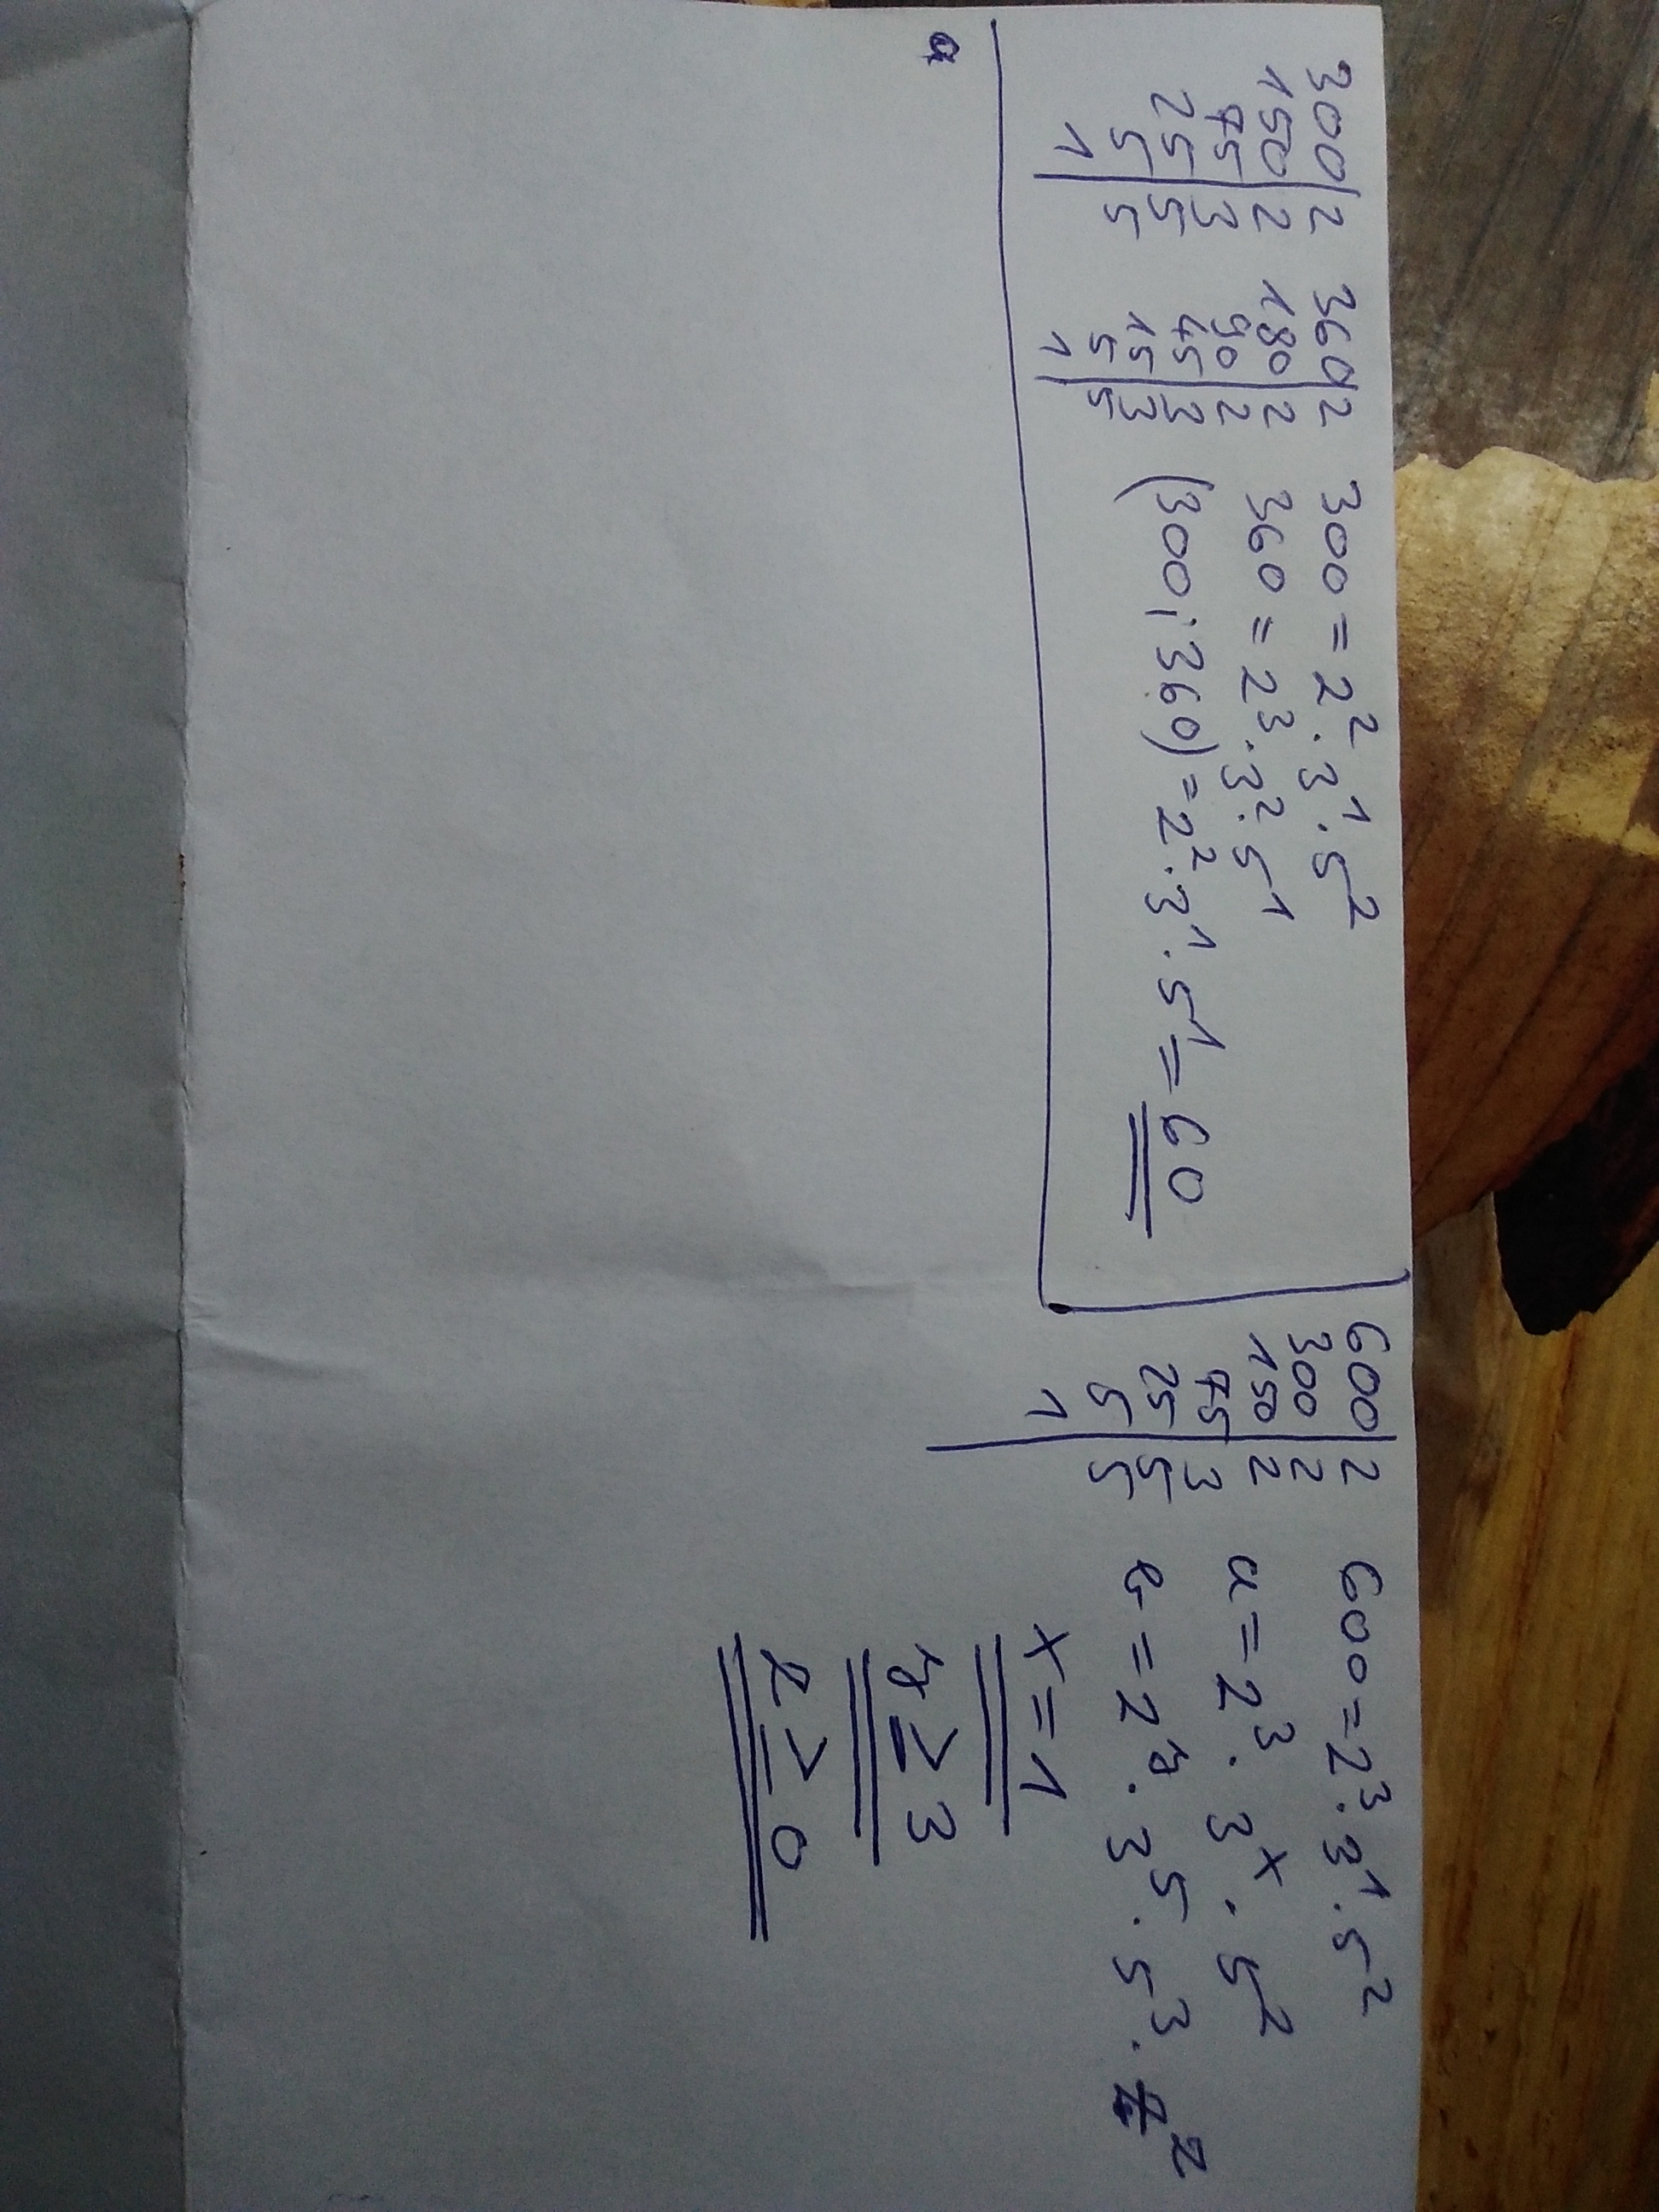 300|2
150|2
75|3
25|5
5|5
1|
360|2
180|2
90|2
45|3
15|3
5|5
1|
300 = 2².3¹.5²
360 = 2³.3².5¹
(300;360) = 2².3¹.5¹ = 60
600|2
300|2
150|2
75|3
25|5
5|5
1|
600 = 2³.3¹.5²
a = 2³.3ˣ.5²
b = 2ʸ.3⁵.5³.7ᶻ
x = 1
y ≥ 3
z ≥ 0
a